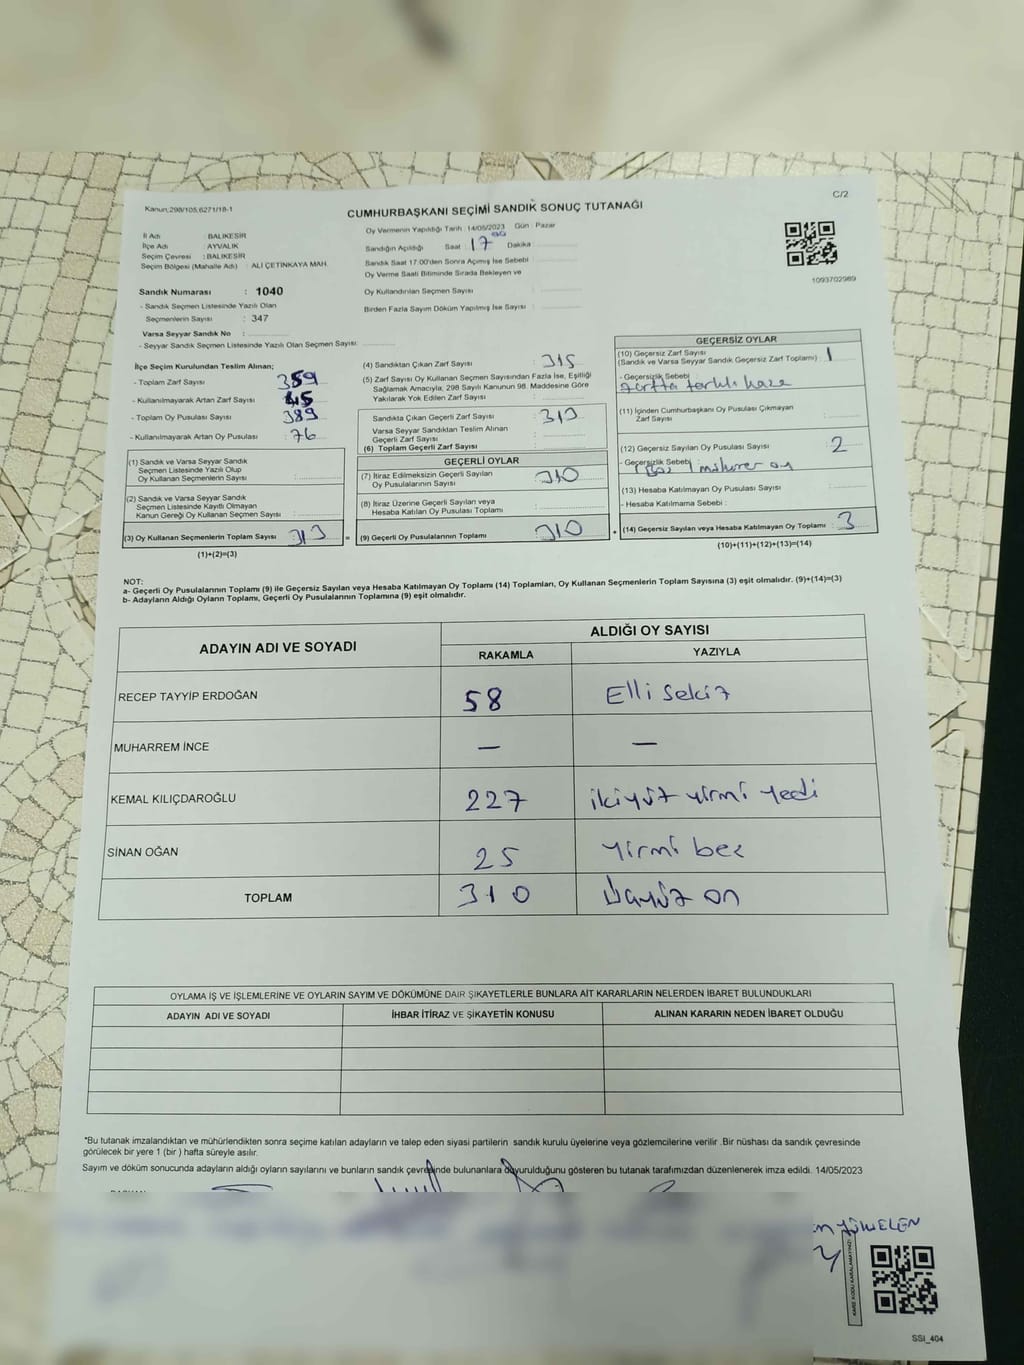 Kanun;298/105,6271/18-1
C/2
CUMHURBAŞKANI SEÇİMİ SANDIK SONUÇ TUTANAĞI
İl Adı : BALIKESİR
İlçe Adı : AYVALIK
Seçim Çevresi : BALIKESİR
Seçim Bölgesi (Mahalle Adı) : ALİ ÇETİNKAYA MAH.
Oy Vermenin Yapıldığı Tarih : 14/05/2023 Gün : Pazar
Sandığın Açıldığı Saat : 17 00 Dakika :
Sandık Saat 17:00'den Sonra Açımış İse Sebebi :
Oy Verme Saati Bitiminde Sırada Bekleyen ve
Oy Kullandırılan Seçmen Sayısı :
Birden Fazla Sayım Döküm Yapılmış İse Sayısı :
1093702989
Sandık Numarası : 1040
- Sandık Seçmen Listesinde Yazılı Olan
Seçmenlerin Sayısı : 347
Varsa Seyyar Sandık No :
- Seyyar Sandık Seçmen Listesinde Yazılı Olan Seçmen Sayısı:
İlçe Seçim Kurulundan Teslim Alınan;
- Toplam Zarf Sayısı : 359
- Kullanılmayarak Artan Zarf Sayısı :
- Toplam Oy Pusulası Sayısı : 389
- Kullanılmayarak Artan Oy Pusulası : 76
(1) Sandık ve Varsa Seyyar Sandık
Seçmen Listesinde Yazılı Olup
Oy Kullanan Seçmenlerin Sayısı :
(2) Sandık ve Varsa Seyyar Sandık
Seçmen Listesinde Kayıtlı Olmayan
Kanun Gereği Oy Kullanan Seçmen Sayısı :
(3) Oy Kullanan Seçmenlerin Toplam Sayısı : 313
(1)+(2)=(3)
(4) Sandıktan Çıkan Zarf Sayısı : 315
(5) Zarf Sayısı Oy Kullanan Seçmen Sayısından Fazla İse, Eşitliği
Sağlamak Amacıyla, 298 Sayılı Kanunun 98. Maddesine Göre
Yakılarak Yok Edilen Zarf Sayısı :
Sandıkta Çıkan Geçerli Zarf Sayısı :
Varsa Seyyar Sandıktan Teslim Alınan
Geçerli Zarf Sayısı :
(6) Toplam Geçerli Zarf Sayısı :
GEÇERLİ OYLAR
(7) İtiraz Edilmeksizin Geçerli Sayılan
Oy Pusulalarının Sayısı : 310
(8) İtiraz Üzerine Geçerli Sayılan veya
Hesaba Katılan Oy Pusulası Toplamı :
= (9) Geçerli Oy Pusulalarının Toplamı : 310 +
GEÇERSİZ OYLAR
(10) Geçersiz Zarf Sayısı
(Sandık ve Varsa Seyyar Sandık Geçersiz Zarf Toplamı) : 1
- Geçersizlik Sebebi :
(11) İçinden Cumhurbaşkanı Oy Pusulası Çıkmayan
Zarf Sayısı :
(12) Geçersiz Sayılan Oy Pusulası Sayısı : 2
- Geçersizlik Sebebi :
(13) Hesaba Katılmayan Oy Pusulası Sayısı :
- Hesaba Katılmama Sebebi :
(14) Geçersiz Sayılan veya Hesaba Katılmayan Oy Toplamı : 3
(10)+(11)+(12)+(13)=(14)
NOT:
a- Geçerli Oy Pusulalarının Toplamı (9) ile Geçersiz Sayılan veya Hesaba Katılmayan Oy Toplamı (14) Toplamları, Oy Kullanan Seçmenlerin Toplam Sayısına (3) eşit olmalıdır. (9)+(14)=(3)
b- Adayların Aldığı Oyların Toplamı, Geçerli Oy Pusulalarının Toplamına (9) eşit olmalıdır.
ADAYIN ADI VE SOYADI
ALDIĞI OY SAYISI
RAKAMLA YAZIYLA
RECEP TAYYİP ERDOĞAN 58 Elli Sekiz
MUHARREM İNCE — —
KEMAL KILIÇDAROĞLU 227 ikiyüz yirmi yedi
SİNAN OĞAN 25 yirmi beş
TOPLAM 310 üçyüz on
OYLAMA İŞ VE İŞLEMLERİNE VE OYLARIN SAYIM VE DÖKÜMÜNE DAİR ŞİKAYETLERLE BUNLARA AİT KARARLARIN NELERDEN İBARET BULUNDUKLARI
ADAYIN ADI VE SOYADI İHBAR İTİRAZ VE ŞİKAYETİN KONUSU ALINAN KARARIN NEDEN İBARET OLDUĞU
*Bu tutanak imzalandıktan ve mühürlendikten sonra seçime katılan adayların ve talep eden siyasi partilerin sandık kurulu üyelerine veya gözlemcilerine verilir .Bir nüshası da sandık çevresinde
görülecek bir yere 1 (bir ) hafta süreyle asılır.
Sayım ve döküm sonucunda adayların aldığı oyların sayılarını ve bunların sandık çevresinde bulunanlara duyurulduğunu gösteren bu tutanak tarafımızdan düzenlenerek imza edildi. 14/05/2023
KARE KODU KARALAMAYINIZ!
SSI_404